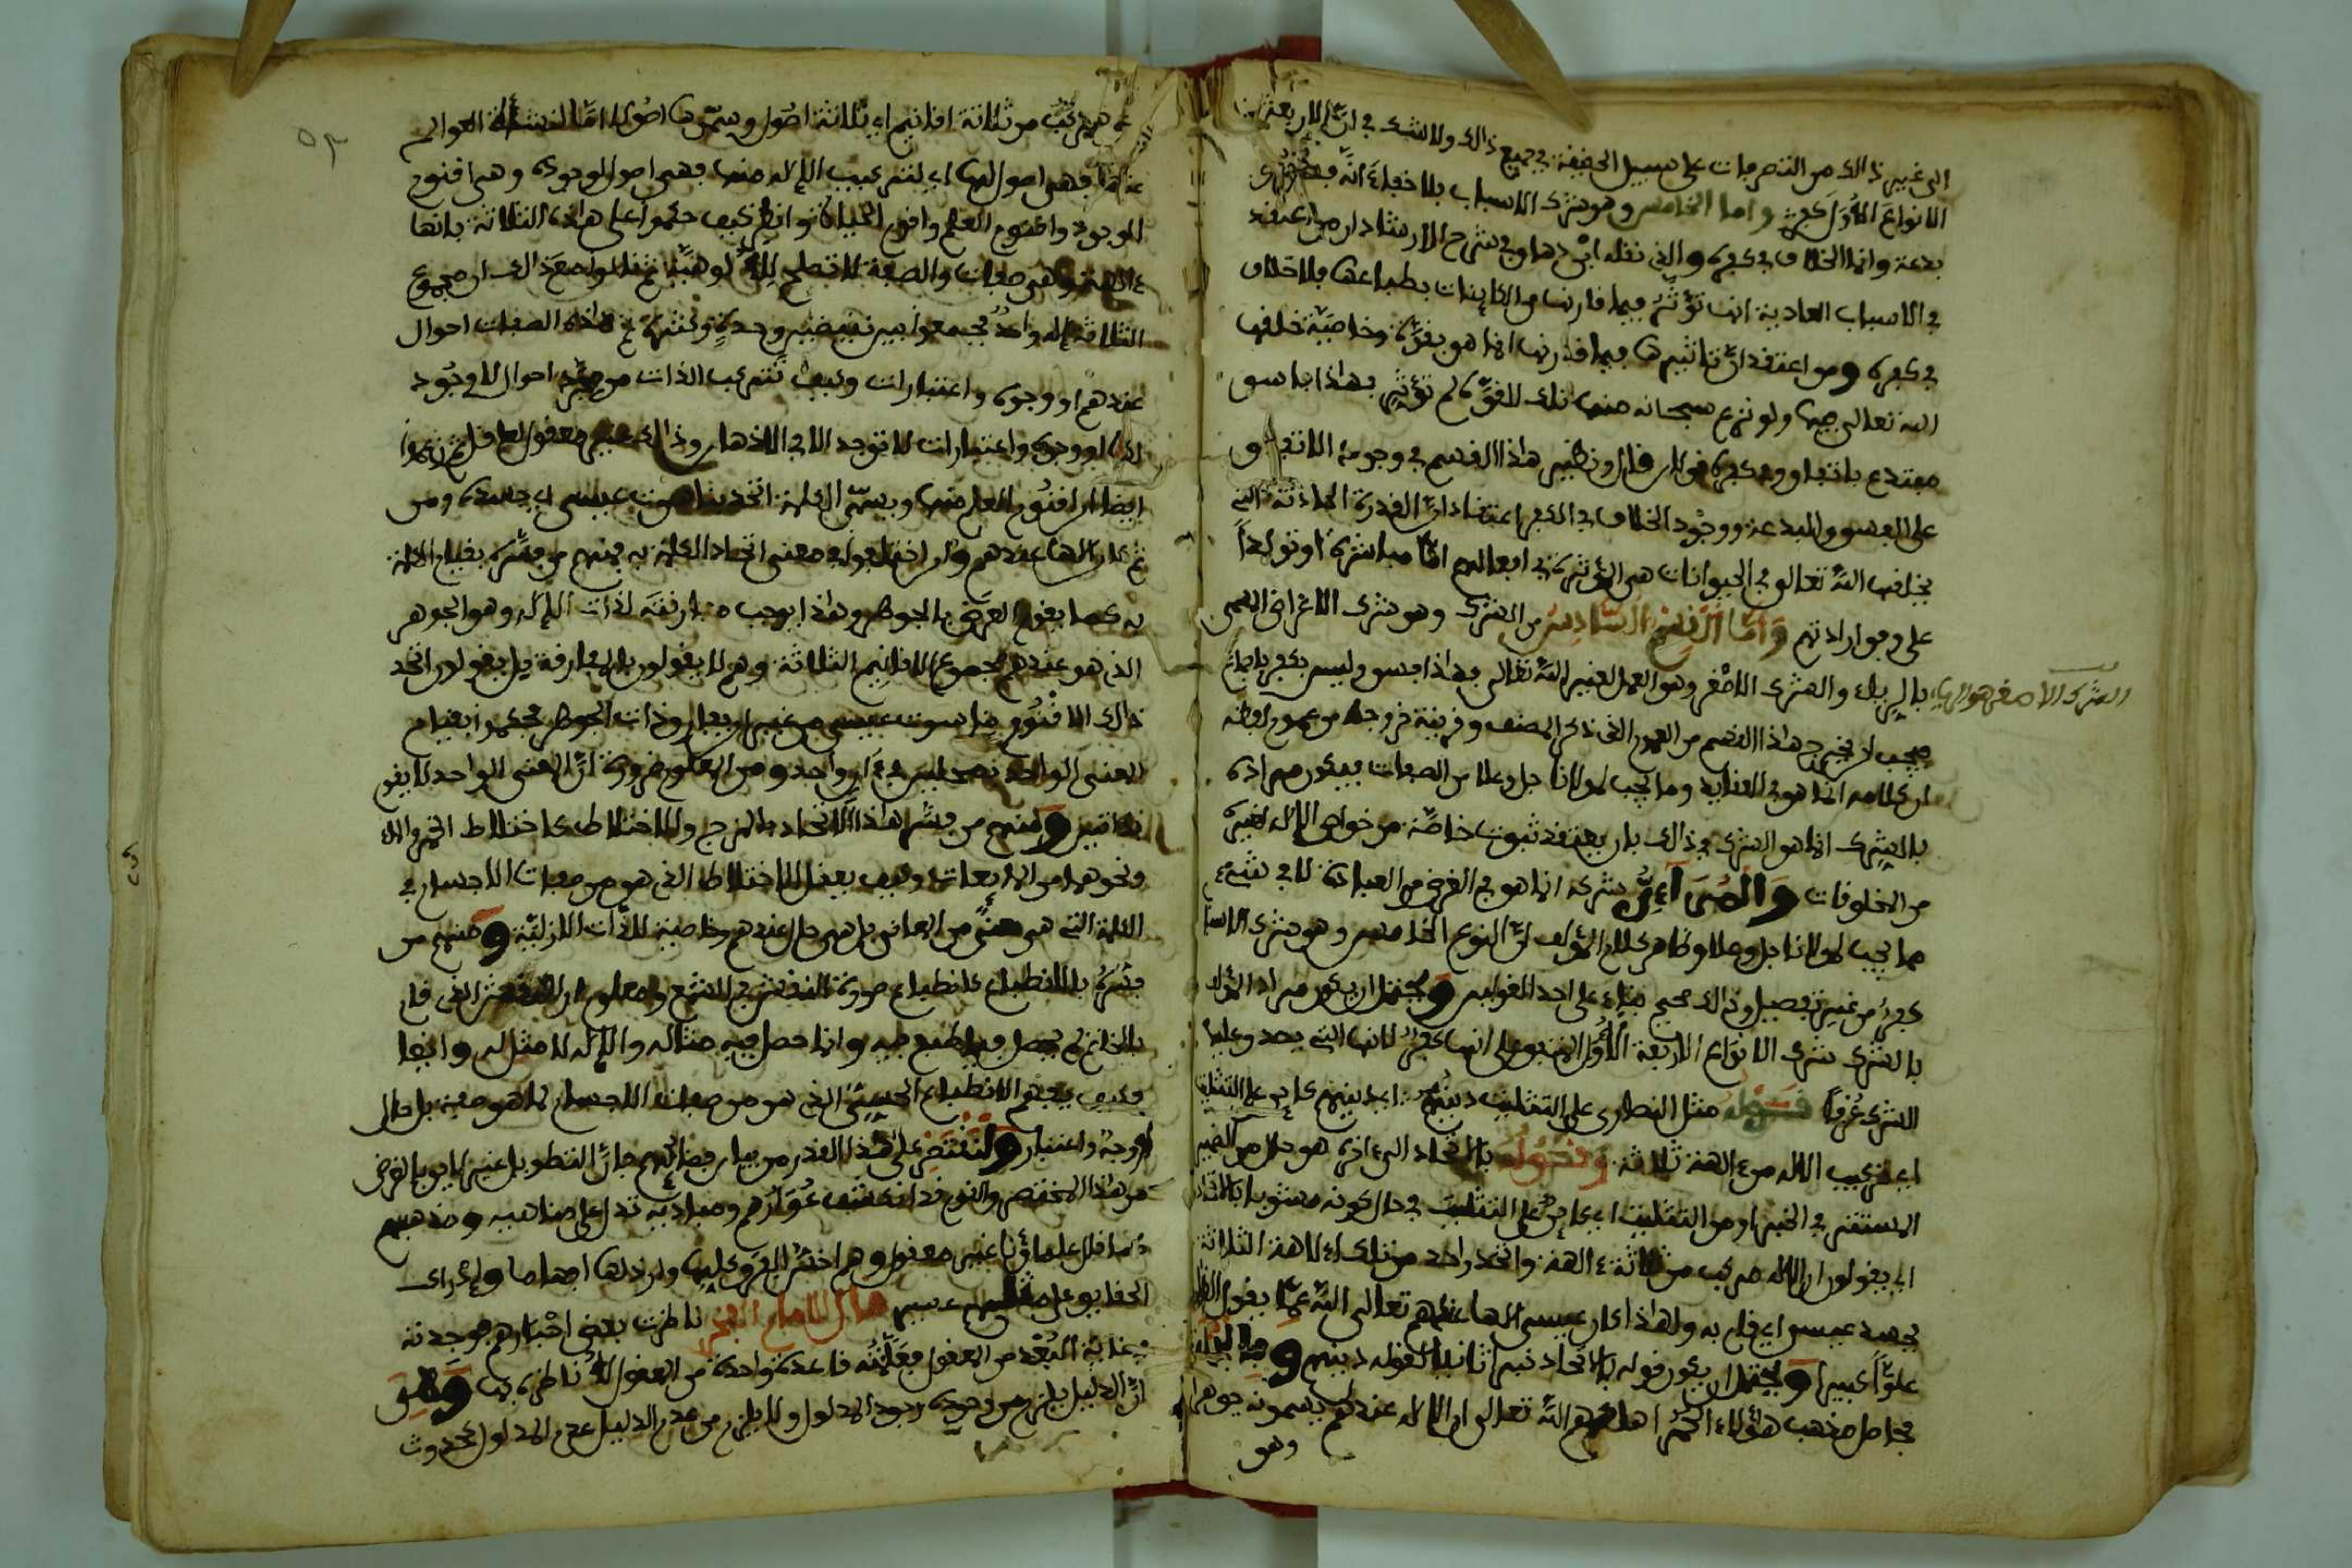 الى غير ذالك من التصرفات على سبيل الحقيقة في جميع ذالك ولا شك في ان الاربعة
الانواع الاول كفر واما الخامس وهو شرك الاسباب بلا خفاء انه
بدعة وانما الخلاف في كفره والذي نقله ابن دهاق في شرح الارشاد ان من اعتقد
في الاسباب العادية انها تؤثر فيما قارنها من الكاينات بطباعها فلا خلاف
في كفره ومن اعتقد ان تاثيرها فيما قارنها انما هو بقوة وخاصية خلقها
الله تعالى فيها ولو نزع سبحانه منها تلك القوة لم تؤثر فهذا فاسق
مبتدع باتفاق وفي كفره قولان قال ونظير هذا القسم في وجود الاتفاق
على الفسق والبدعة ووجود الخلاف في الكفر اعتقاد ان القدرة الحادثة التي
يخلقها الله تعالى في الحيوانات هي المؤثرة في افعالهم اما مباشرة او تولدا
على وفق ارادتهم واما القسم السادس من الشرك وهو شرك الاغراض المسمى
بالرياء والشرك الاصغر وهو العمل لغير الله تعالى فهذا فسق وليس بكفر باجماع
الشرك الاصغر هو الرياء
فيجب ان يخرج هذا القسم من العموم الذي ذكر المصنف وقرينة خروجه من عموم لفظه
ان كلامه انما هو في العقايد وما يجب لمولانا جل وعلا من الصفات فيكون مراده
بالشرك انما هو الشرك في ذالك بان يعتقد ثبوت خاصة من خواص الاله لغيره
من المخلوقات والمراءي شركه انما هو في الغرض من العبادة لا في شيء
مما يجب لمولانا جل وعلا وظاهر كلام المؤلف ان النوع الخامس وهو شرك الاسباب
كفر من غير تفصيل وذالك صحيح بناء على احد القولين ويحتمل ان يكون مراد المؤلف
بالشرك شرك الانواع الاربعة الاول المتفق على انها كفر لانها التي يصدق عليها
الشرك عرفا قوله مثل النصارى على التثليث دينهم اي دينهم كاين على التثليث
اي تركيب الاله من ءالهة ثلاثة وقوله بالاتحاد الى ءاخره هو حال من الضمير
المستقر في الخبر او من التثليث اي كاين على التثليث في حال كونه مصحوبا بالاتحاد
اي يقولون ان الاله مركب من ثلاثة ءالهة واتحد واحد من تلك الالهة الثلاثة
بجسد عيسى اي قام به ولهذا كان عيسى الها عندهم تعالى الله عما يقول الظالمون
علوا كبيرا ويحتمل ان يكون قوله بالاتحاد خبرا ثانيا لقوله دينهم
فحاصل مذهب هؤلاء الحمر اهلكهم الله تعالى ان الاله عندهم يسمونه جوهرا
وهو
مركب من ثلاثة اقانيم اي ثلاثة اصول وسموها اصولا اما لنشأة العوالم
عنها فهي اصول لها اي لتركيب الاله منها فهي اصول لوجوده وهي اقنوم
الوجود واقنوم العلم واقنوم الحياة وانظر كيف حكموا على هذه الثلاثة بانها
ءالهة وهي صفات والصفة لا تصلح للالوهية ثم قالوا مع ذالك ان مجموع
الثلاثة اله واحد فجمعوا بين نقيضين وحدة وكثرة ثم هذه الصفات احوال
عندهم او وجوه واعتبارات وكيف تتركب الذات من مجرد احوال لا وجود
لها او وجوه واعتبارات لا توجد الا في الاذهان وذالك غير معقول لعاقل ثم زعموا
ايضا ان اقنوم العلم منها ويسمى الكلمة اتحد بناسوت عيسى اي جسده ومن
ثم كان الها عندهم واختلفوا في معنى اتحاد الكلمة به فمنهم من فسره بقيام الكلمة
به كما يقوم العرض بالجوهر وهذا يوجب مفارقته لذات الاله وهو الجوهر
الذي هو عندهم مجموع الاقانيم الثلاثة وهم لا يقولون بالمفارقة بل يقولون اتحد
ذالك الاقنوم بناسوت عيسى من غير ان يفارق ذات الجوهر فحكموا بقيام
المعنى الواحد بمحلين في ءان واحد ومن المعلوم ضرورة ان المعنى الواحد لا يقوم
بذاتين ومنهم من فسر هذا الاتحاد بالمزج والاختلاط كاختلاط الخمر والماء
ونحوهما من المايعات وكيف يعقل الاختلاط الذي هو من صفات الاجسام في
الكلمة التي هي معنى من المعاني بل هي حال عندهم وخاصية للذات الازلية ومنهم من
فسره بالانطباع كانطباع صورة النقش في الشمع ومعلوم ان النقش الذي قام
بالخاتم لم يحصل فيما طبع فيه وانما حصل فيه مثاله والاله لا مثل له وايضا
فكيف يفهم الانطباع الحسي الذي هو من صفات الاجسام لما هو صفة بل حال
او وجه واعتبار ولنقتصر على هذا القدر من بيان فضائحهم فان التطويل غير لايق بالغرض
من هذا المختصر والقوم قد انكشف عوارهم ومباديه تدل على مناهيه ومذهبهم
كما قال علماؤنا غير معقول وهم اخس الفرق عليها وادراك
الحقايق على مثلهم عسير قال الامام الفخر ناظرت بعض احبارهم فوجدته
في غاية البعد من المعقول فعلمته قاعدة واحدة من المعقول لاناظره بها وهي
ان الدليل يلزم من وجوده وجود المدلول ولا يلزم من عدم الدليل عدم المدلول كحدوث